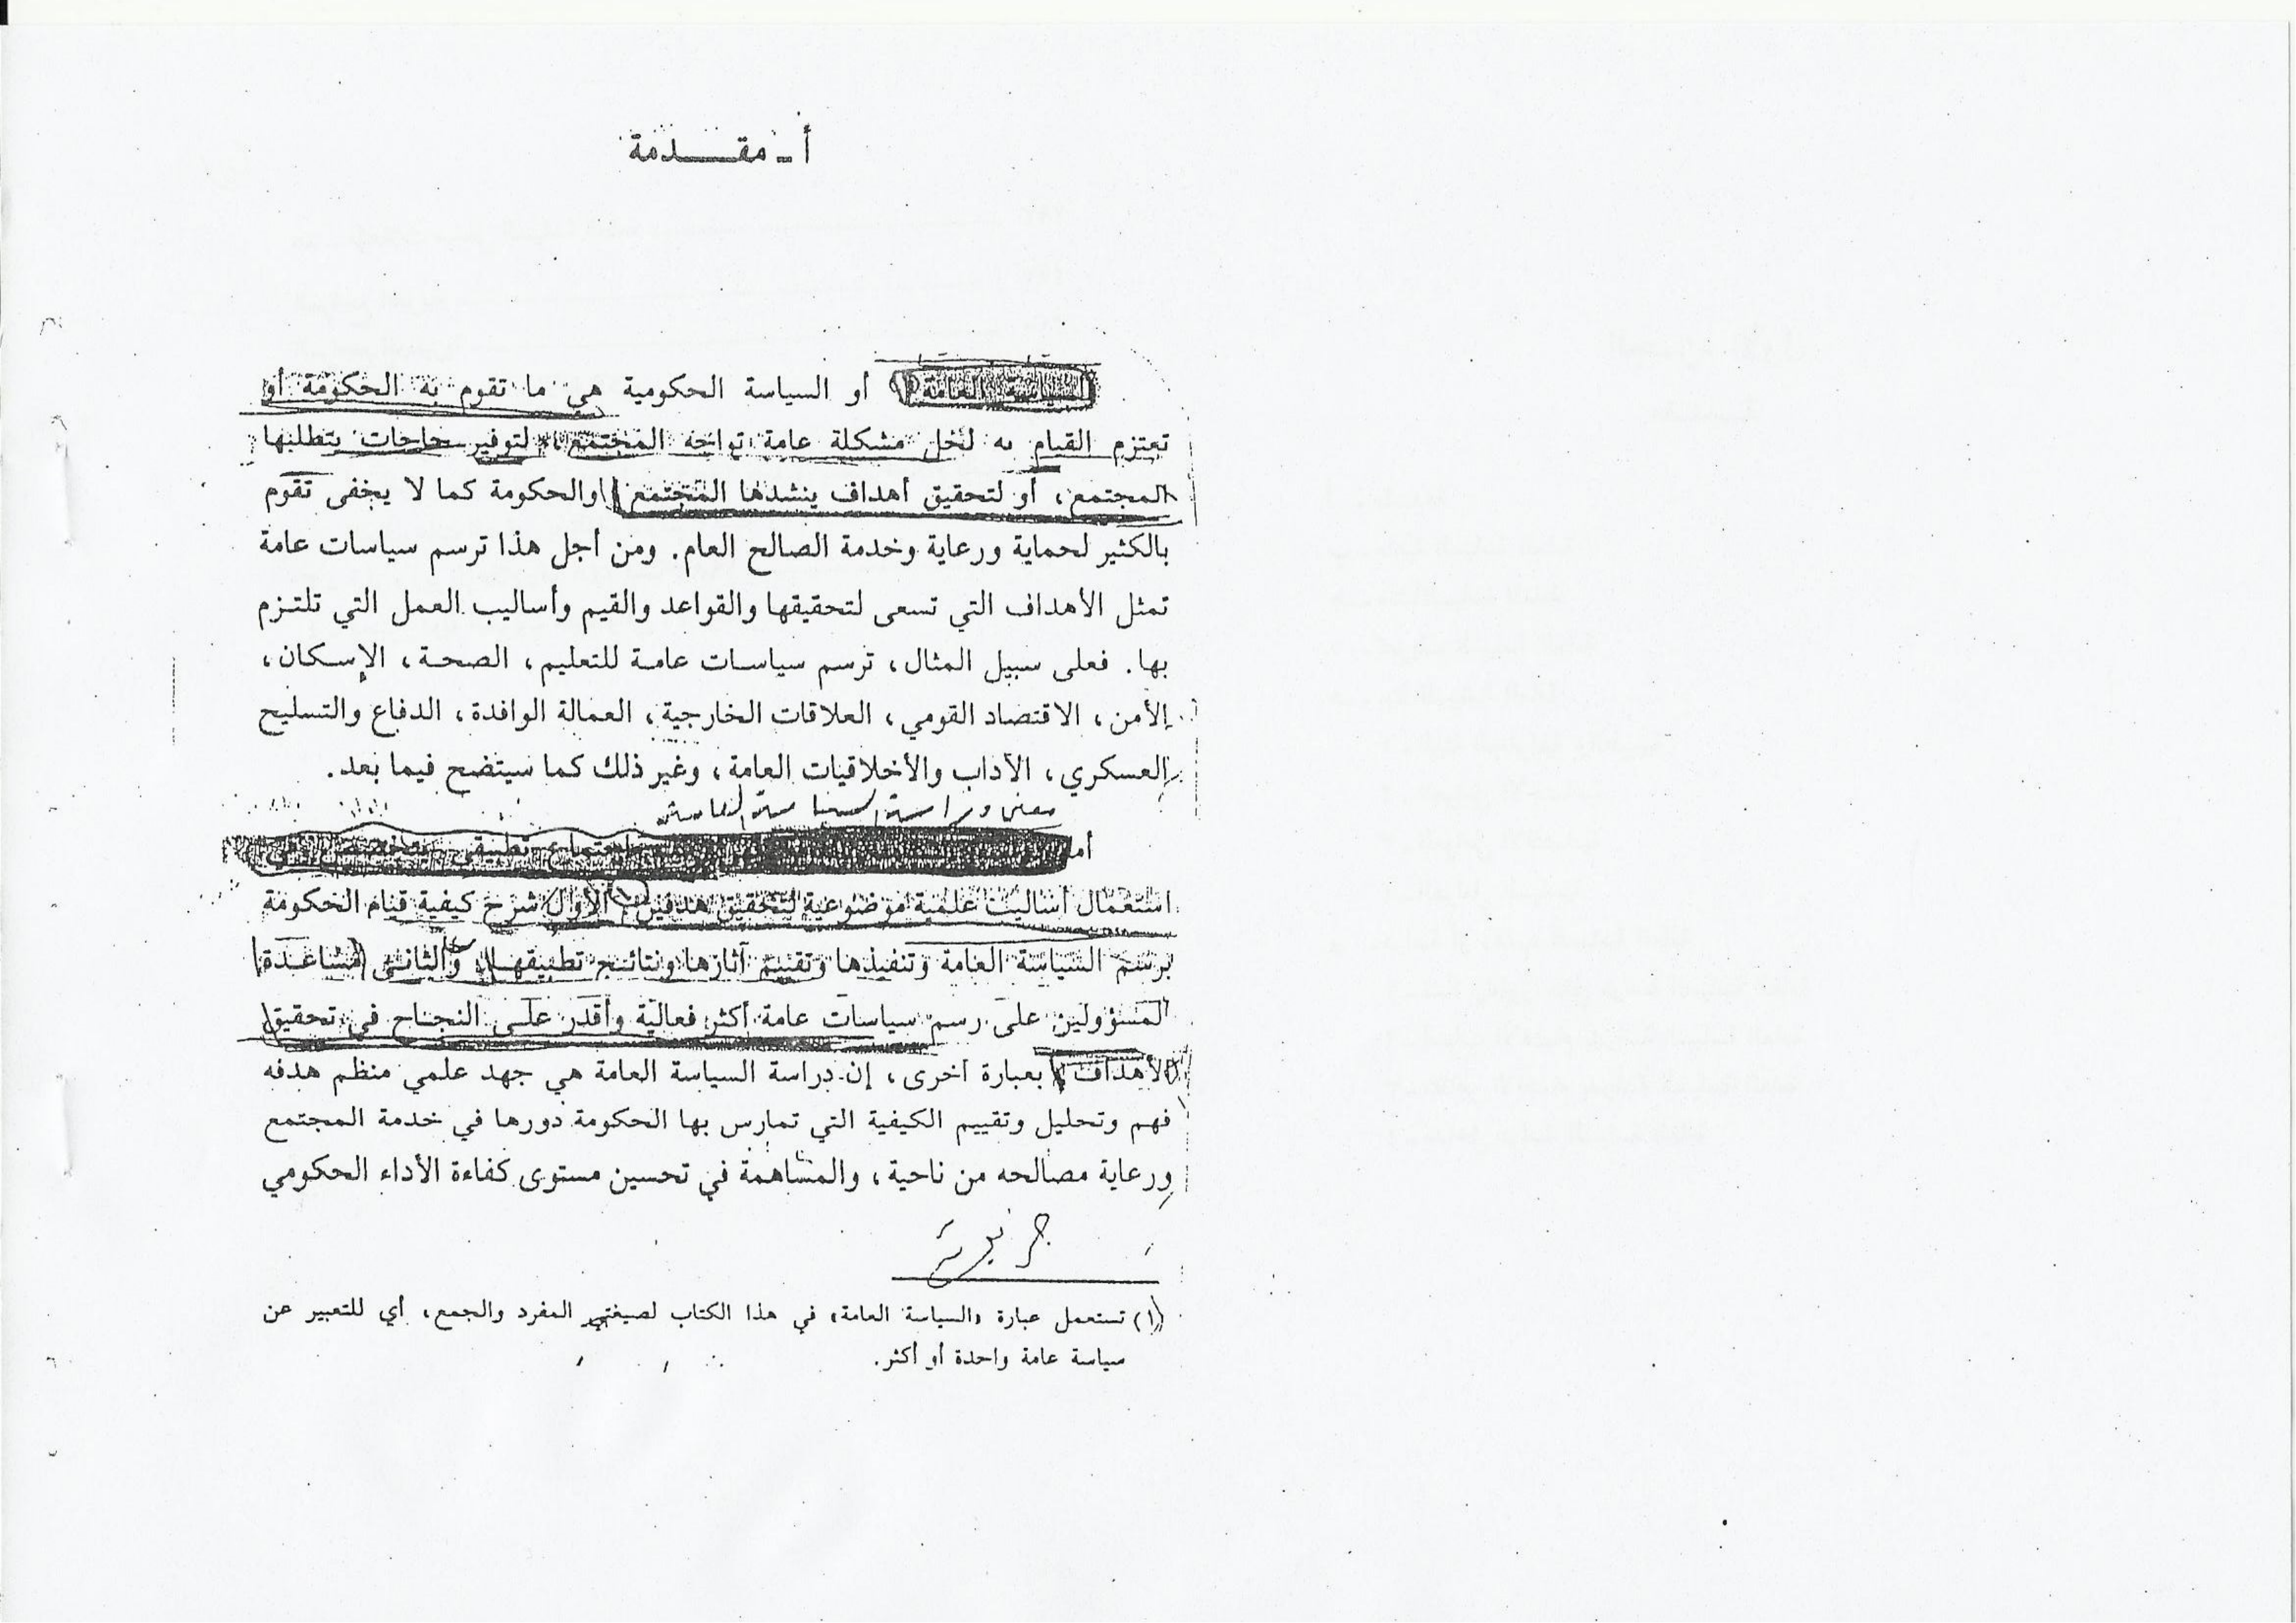 أ ـ مقـــدمة
السياسة العامة (١) أو السياسة الحكومية هي ما تقوم به الحكومة أو
تعتزم القيام به لحل مشكلة عامة تواجه المجتمع، لتوفير حاجات يتطلبها
المجتمع، أو لتحقيق أهداف ينشدها المجتمع والحكومة كما لا يخفى تقوم
بالكثير لحماية ورعاية وخدمة الصالح العام. ومن أجل هذا ترسم سياسات عامة
تمثل الأهداف التي تسعى لتحقيقها والقواعد والقيم وأساليب العمل التي تلتزم
بها. فعلى سبيل المثال، ترسم سياسات عامة للتعليم، الصحة، الإسكان،
الأمن، الاقتصاد القومي، العلاقات الخارجية، العمالة الوافدة، الدفاع والتسليح
العسكري، الآداب والأخلاقيات العامة، وغير ذلك كما سيتضح فيما بعد.
معنى دراسة السياسة العامة
أما تطبيقي
استعمال أساليب علمية موضوعية لتحقيق هدفين: الأول شرح كيفية قيام الحكومة
برسم السياسة العامة وتنفيذها وتقييم آثارها ونتائج تطبيقها، والثاني مساعدة
المسؤولين على رسم سياسات عامة أكثر فعالية وأقدر على النجاح في تحقيق
الأهداف بعبارة أخرى، إن دراسة السياسة العامة هي جهد علمي منظم هدفه
فهم وتحليل وتقييم الكيفية التي تمارس بها الحكومة دورها في خدمة المجتمع
ورعاية مصالحه من ناحية، والمساهمة في تحسين مستوى كفاءة الأداء الحكومي
(١) تستعمل عبارة «السياسة العامة» في هذا الكتاب لصيغتي المفرد والجمع، أي للتعبير عن
سياسة عامة واحدة أو أكثر.